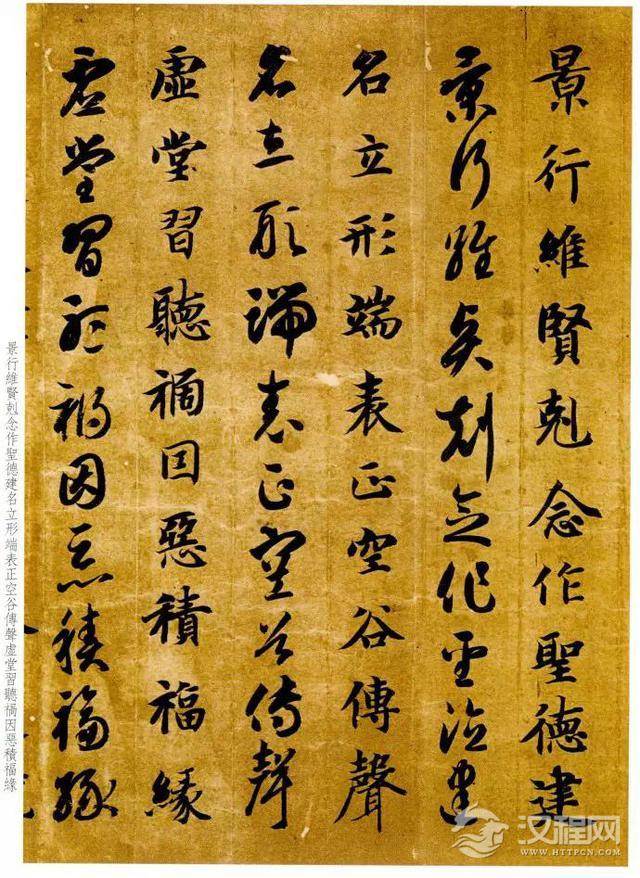 景行維賢剋念作聖德建
景行維賢剋念作聖德建
名立形端表正空谷傳聲
名立形端表正空谷傳聲
虛堂習聽禍因惡積福緣
虛堂習聽禍因惡積福緣
景行維賢剋念作聖德建名立形端表正空谷傳聲虛堂習聽禍因惡積福緣
汉程网
WWW.HTTPCN.COM